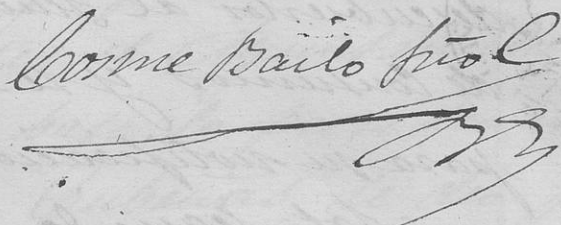 Cosme Bailo Puol